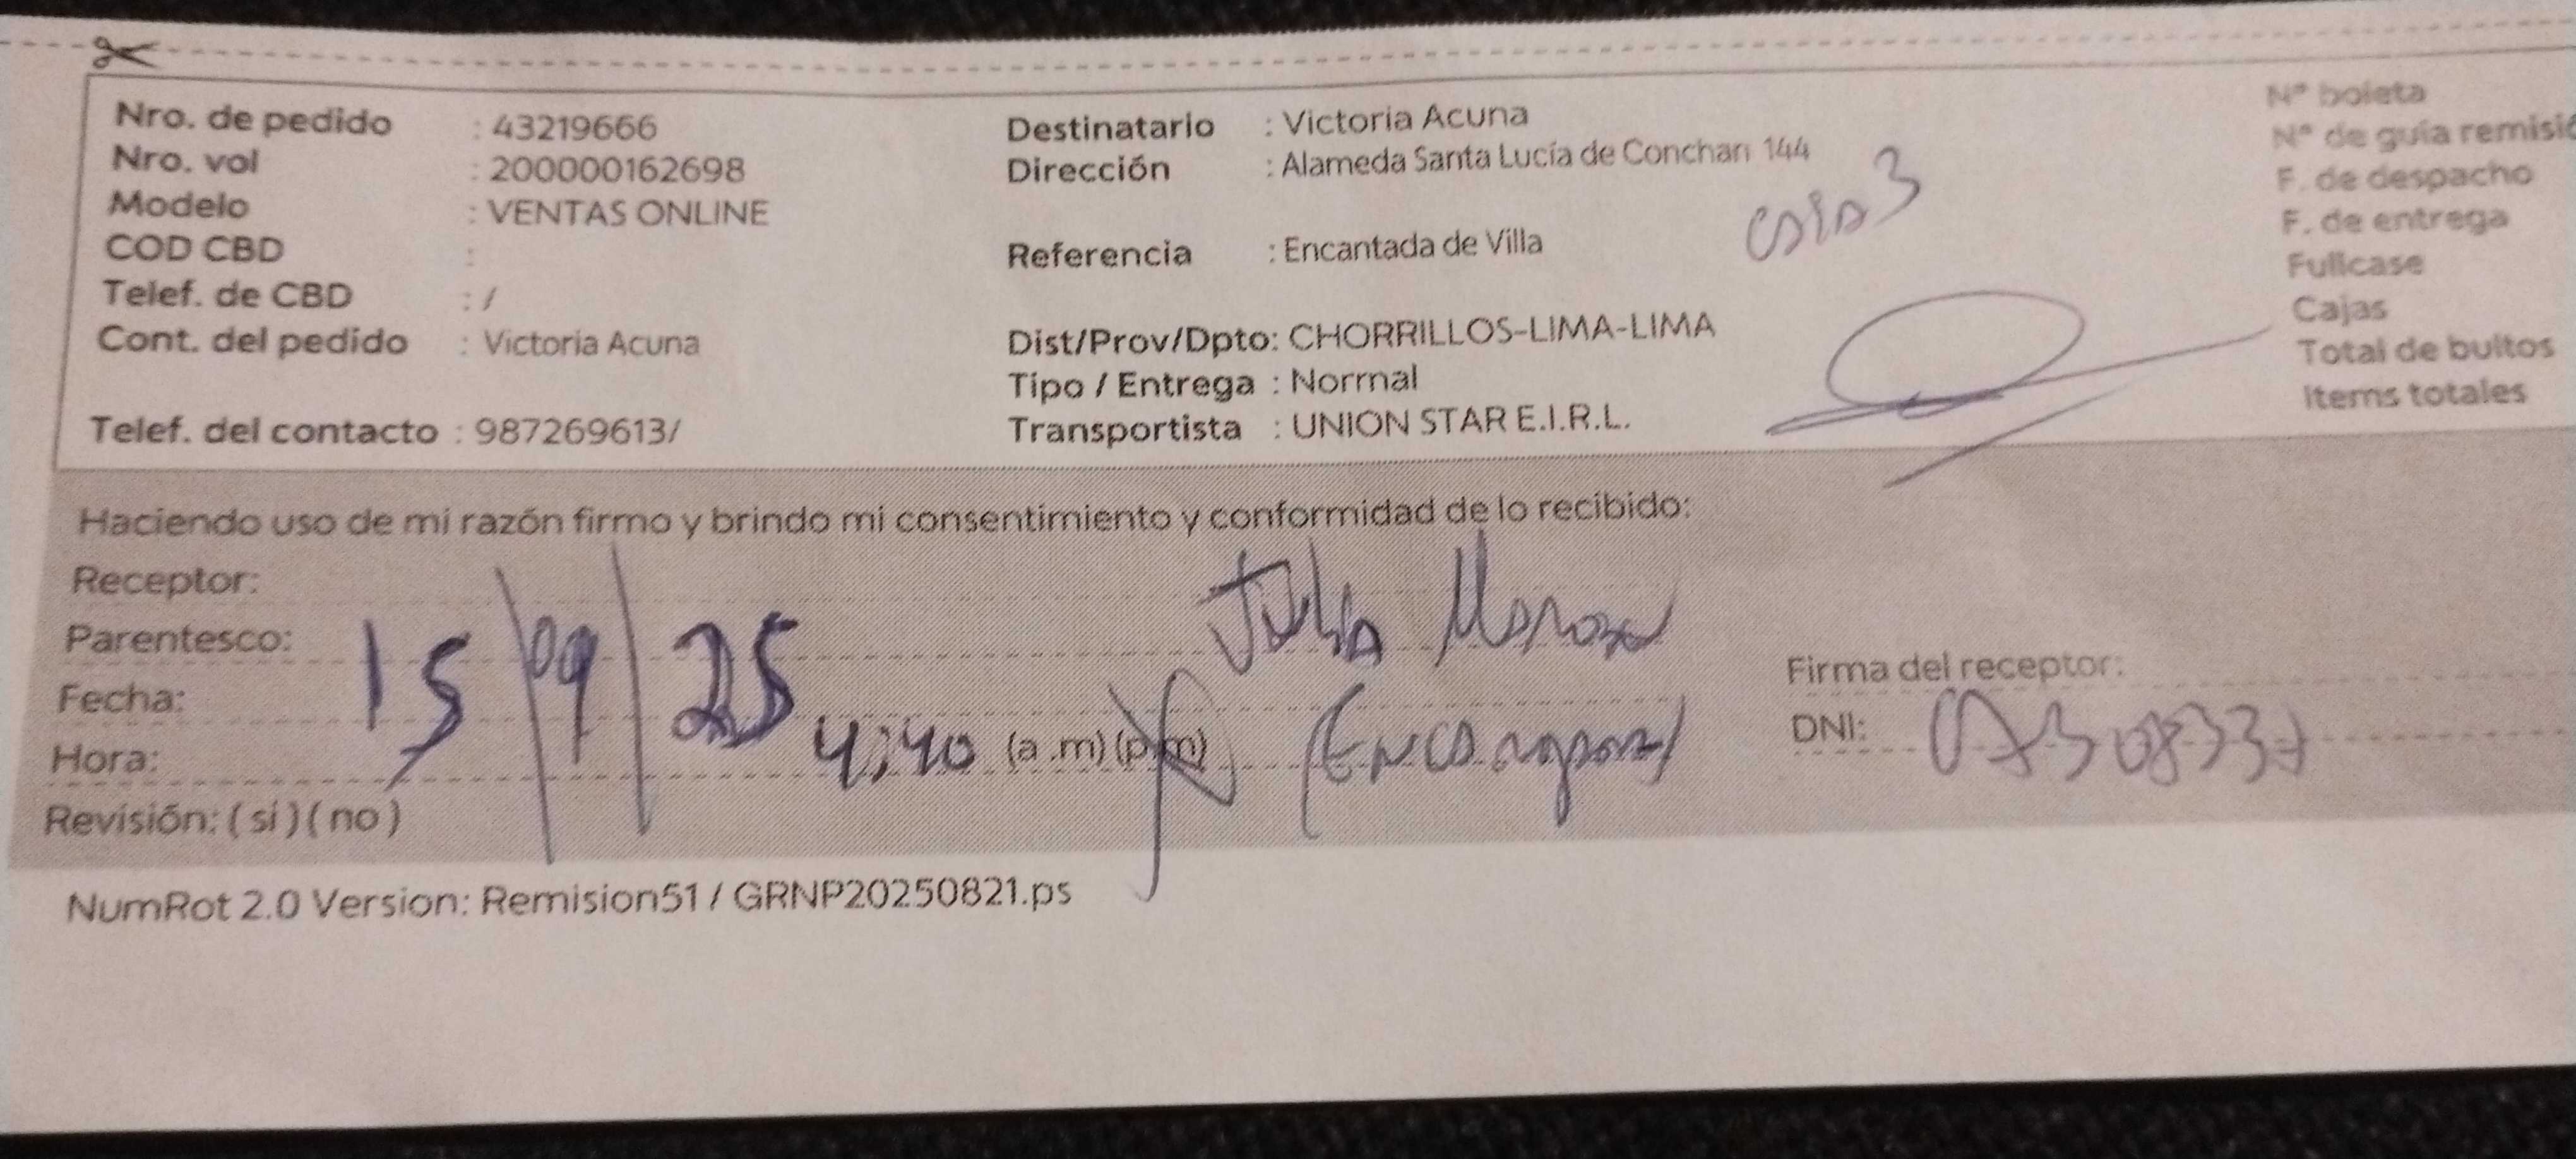 Nro. de pedido : 43219666
Nro. vol : 200000162698
Modelo : VENTAS ONLINE
COD CBD :
Telef. de CBD : /
Cont. del pedido : Victoria Acuna
Telef. del contacto : 987269613/
Destinatario : Victoria Acuna
Dirección : Alameda Santa Lucía de Conchan 144
casa 3
Referencia : Encantada de Villa
Dist/Prov/Dpto: CHORRILLOS-LIMA-LIMA
Tipo / Entrega : Normal
Transportista : UNION STAR E.I.R.L.
N° boleta
N° de guía remisió
F. de despacho
F. de entrega
Fullcase
Cajas
Total de bultos
Items totales
Haciendo uso de mi razón firmo y brindo mi consentimiento y conformidad de lo recibido:
Receptor: Julia
Parentesco:
Fecha: 15/09/25
Hora: 4:40 (a .m) (p.m)
Revisión: ( si ) ( no )
Firma del receptor:
DNI:
NumRot 2.0 Version: Remision51 / GRNP20250821.ps